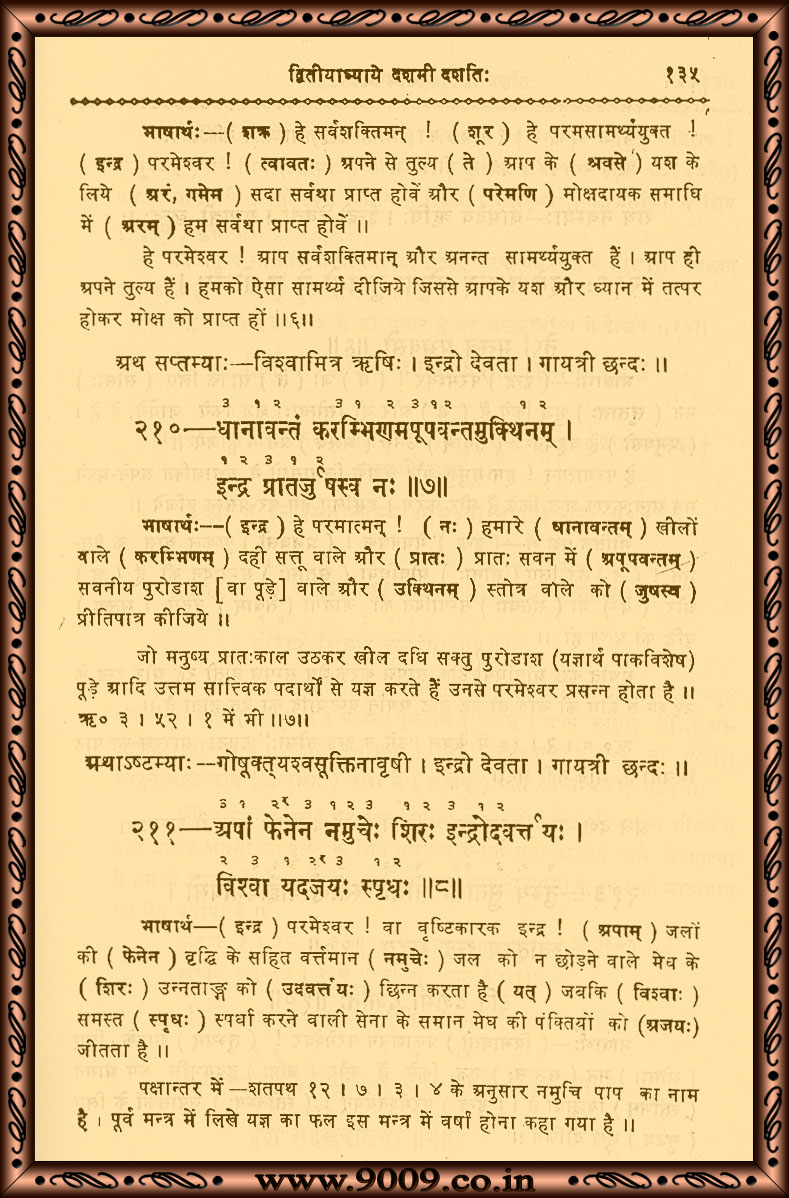 द्वितीयाध्याये दशमी दशतिः १३५
भाषार्थः—( शक्र ) हे सर्वशक्तिमन् ! ( शूर ) हे परमसामर्थ्ययुक्त !
( इन्द्र ) परमेश्वर ! ( त्वावतः ) अपने से तुल्य ( ते ) आप के ( श्रवसे ) यश के
लिये ( अरं, गमेम ) सदा सर्वथा प्राप्त होवें और ( परेमणि ) मोक्षदायक समाधि
में ( अरम् ) हम सर्वथा प्राप्त होवें ॥
हे परमेश्वर ! आप सर्वशक्तिमान् और अनन्त सामर्थ्ययुक्त हैं । आप ही
अपने तुल्य हैं । हमको ऐसा सामर्थ्य दीजिये जिससे आपके यश और ध्यान में तत्पर
होकर मोक्ष को प्राप्त हों ॥६॥
अथ सप्तम्याः—विश्वामित्र ऋषिः । इन्द्रो देवता । गायत्री छन्दः ॥
३ १ २ ३ १ २ ३ १२ १ २
२१०—धानावन्तं करम्भिणमपूपवन्तमुक्थिनम् ।
१ २ ३ १ २
इन्द्र प्रातर्जुषस्व नः ॥७॥
भाषार्थः--( इन्द्र ) हे परमात्मन् ! ( नः ) हमारे ( धानावन्तम् ) खीलों
वाले ( करम्भिणम् ) दही सत्तू वाले और ( प्रातः ) प्रातः सवन में ( अपूपवन्तम् )
सवनीय पुरोडाश [ वा पूड़े ] वाले और ( उक्थिनम् ) स्तोत्र वाले को ( जुषस्व )
प्रीतिपात्र कीजिये ॥
जो मनुष्य प्रातःकाल उठकर खील दधि सक्तु पुरोडाश (यज्ञार्थ पाकविशेष)
पूड़े आदि उत्तम सात्त्विक पदार्थों से यज्ञ करते हैं उनसे परमेश्वर प्रसन्न होता है ॥
ऋ० ३ । ५२ । १ में भी ॥७॥
अथाऽष्टम्याः--गोषूक्त्यश्वसूक्तिनावृषी । इन्द्रो देवता । गायत्री छन्दः ॥
३ १ २र ३ १ २ ३ १ २ ३ १ २
२११—अपां फेनेन नमुचेः शिरः इन्द्रोदवर्त्तयः ।
२ ३ १ २र ३ १ २
विश्वा यदजयः स्पृधः ॥८॥
भाषार्थ—( इन्द्र ) परमेश्वर ! वा वृष्टिकारक इन्द्र ! ( अपाम् ) जलों
की ( फेनेन ) वृद्धि के सहित वर्त्तमान ( नमुचेः ) जल को न छोड़ने वाले मेघ के
( शिरः ) उन्नताङ्ग को ( उदवर्त्तयः ) छिन्न करता है ( यत् ) जबकि ( विश्वाः )
समस्त ( स्पृधः ) स्पर्धा करने वाली सेना के समान मेघ की पंक्तियों को (अजयः)
जीतता है ॥
पक्षान्तर में—शतपथ १२ । ७ । ३ । ४ के अनुसार नमुचि पाप का नाम
है । पूर्व मन्त्र में लिखे यज्ञ का फल इस मन्त्र में वर्षा होना कहा गया है ॥
www.9009.co.in